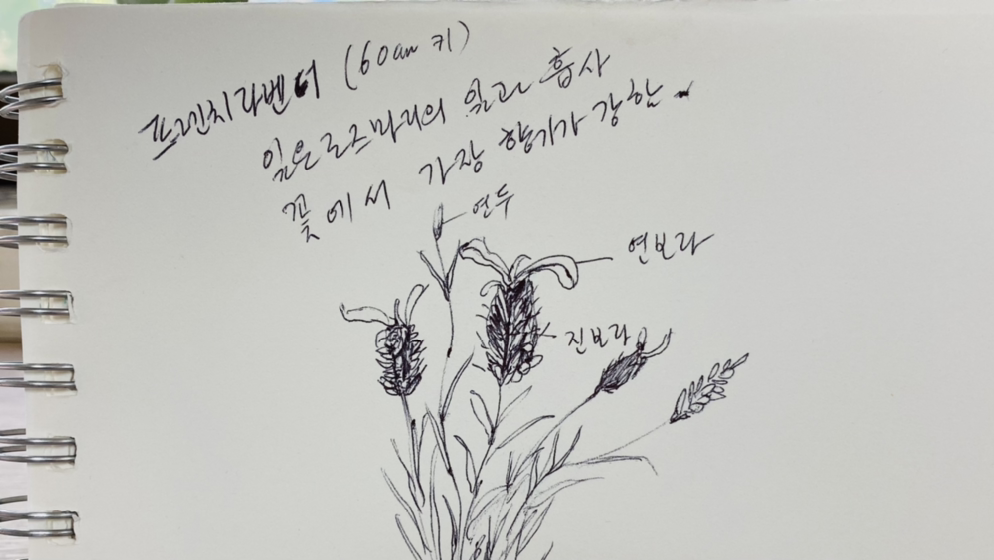 프렌치라벤더 (60cm 키)
잎은 로즈마리의 잎과 흡사
꽃에서 가장 향기가 강함.
연두
연보라
진보라